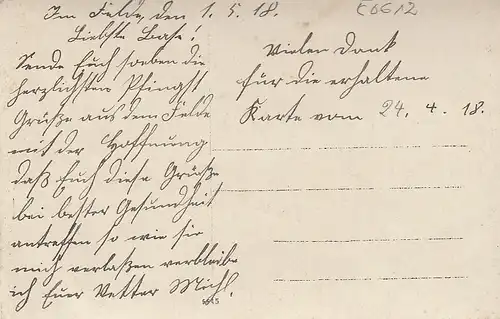 Im Felde, den 1. 5. 18.
Liebste Base!
Sende Euch soeben die
herzlichsten Pfingst
Grüße aus dem Felde
mit der Hoffnung
daß Euch diese Grüße
bei bester Gesundheit
antreffen so wie sie
mich verlaßen verbleibe
ich Euer Vetter Michl.
Vielen Dank
für die erhaltene
Karte vom 24. 4. 18.